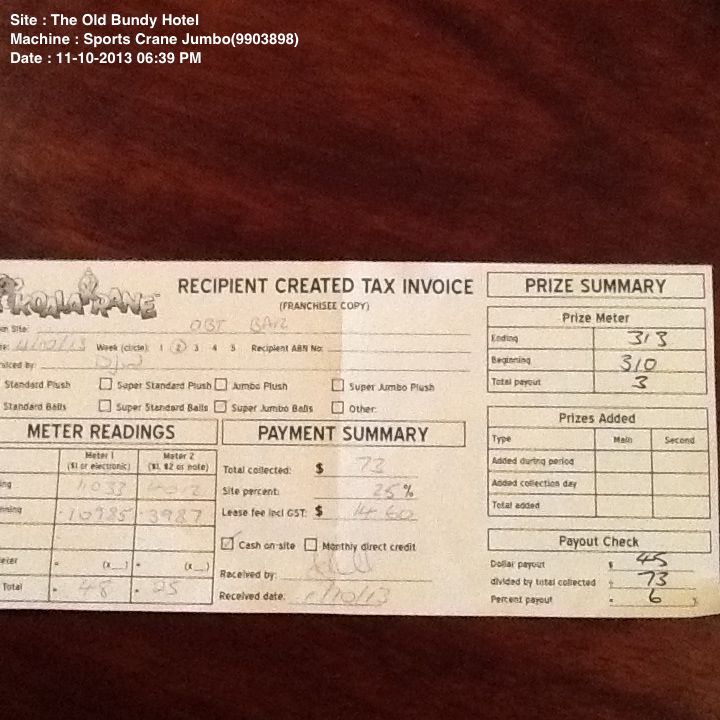 Site : The Old Bundy Hotel
Machine : Sports Crane Jumbo(9903898)
Date : 11-10-2013 06:39 PM
KOALA CRANE™
RECIPIENT CREATED TAX INVOICE
(FRANCHISEE COPY)
on Site: OBT BAR
te: 11/10/13 Week (circle): 1 2 3 4 5 Recipient ABN No:
viced by:
Standard Plush Super Standard Plush Jumbo Plush Super Jumbo Plush
Standard Balls Super Standard Balls Super Jumbo Balls Other:
METER READINGS
Meter 1 Meter 2
($1 or electronic) ($1, $2 or note)
ing 11033 4012
nning - 10985 - 3987
eter - (x__) - (x__)
Total - 48 - 25
PAYMENT SUMMARY
Total collected: $ 73
Site percent: %
Lease fee incl GST: $ 14.60
Cash on-site Monthly direct credit
Received by:
Received date: 11/10/13
PRIZE SUMMARY
Prize Meter
Ending 313
Beginning 310
Total payout 3
Prizes Added
Type Main Second
Added during period
Added collection day
Total added
Payout Check
Dollar payout $ 45
divided by total collected ÷ 73
Percent payout = 6 %